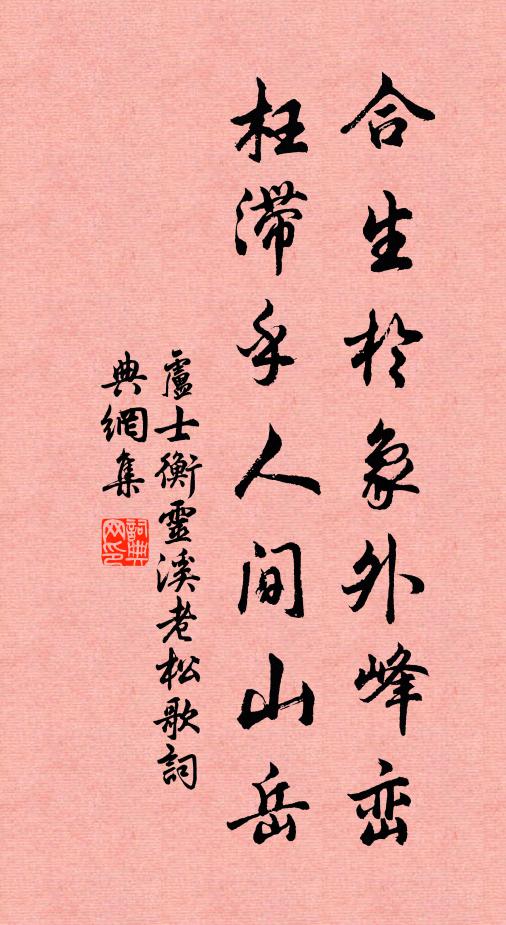 合生於象外峰峦
枉滞乎人间山岳
盧士衡靈溪老松歌詞
典網集
詞典網印